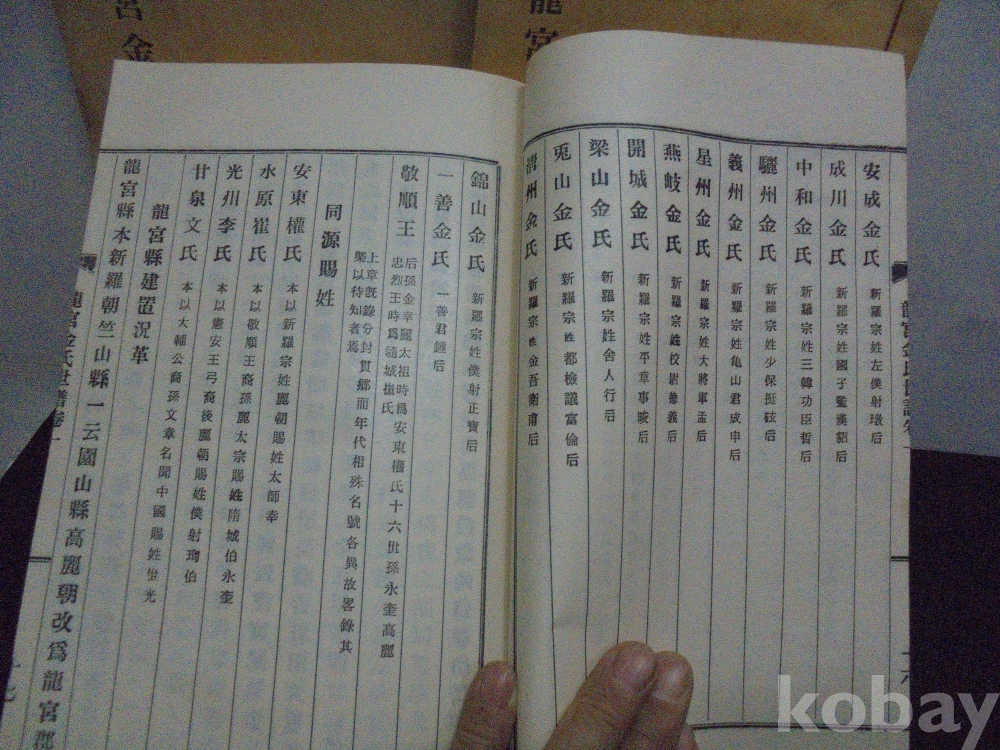 龍宮
宮金
龍宮金氏世譜卷
安成金氏 新羅宗姓左僕射璥后
成川金氏 新羅宗姓國子監漢貂后
中和金氏 新羅宗姓三韓功臣哲后
驪州金氏 新羅宗姓少保挺硋后
義州金氏 新羅宗姓龟山君成申后
星州金氏 新羅宗姓大將軍孟后
燕岐金氏 新羅宗姓校尉蕙義后
開城金氏 新羅宗姓平章事晙后
梁山金氏 新羅宗姓舍人行后
兎山金氏 新羅宗姓都檢議富倫后
清州金氏 新羅宗姓金吾衛甫后
錦山金氏 新羅宗姓僕射正寶后
一善金氏 一善君鍾后
敬順王 后孫金幸麗太祖時爲安東權氏十六世孫永奎高麗
忠烈王時爲隨城崔氏
上章旣錄分封貫鄕而年代相殊名號各異故畧錄其
槩以待知者焉
同源賜姓
安東權氏 本以新羅宗姓麗朝賜姓太師幸
水原崔氏 本以敬順王裔孫麗太宗賜姓隋城伯永奎
光州李氏 本以憲安王弓裔後麗朝賜姓僕射珣伯
甘泉文氏 本以大輔公裔孫文章名聞中國賜姓世光
龍宮縣建置況革
龍宮縣本新羅朝竺山縣一云園山縣高麗朝改爲龍宮郡
龍宮金氏世譜卷一
十七
kobay